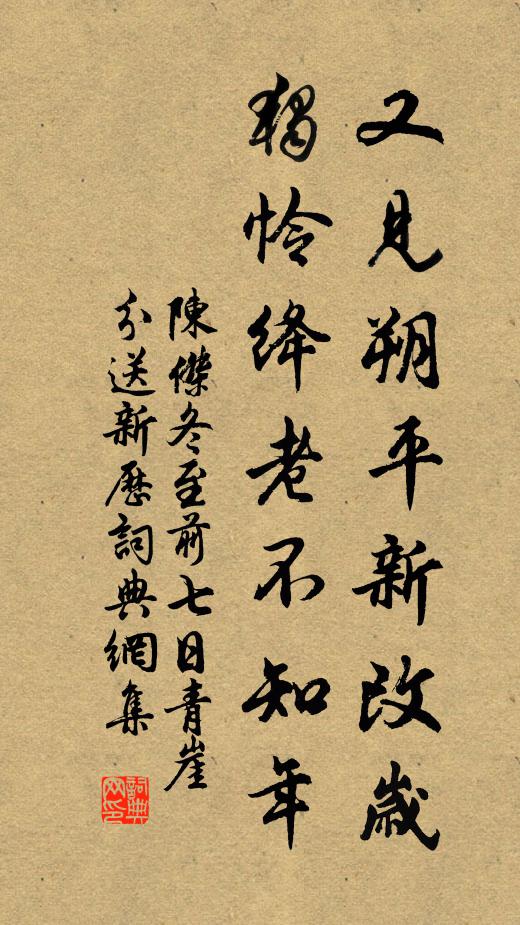 又見朔平新改歲
獨憐絳老不知年
陳傑冬至前七日青崖
分送新歷詞典網集
詞典网印